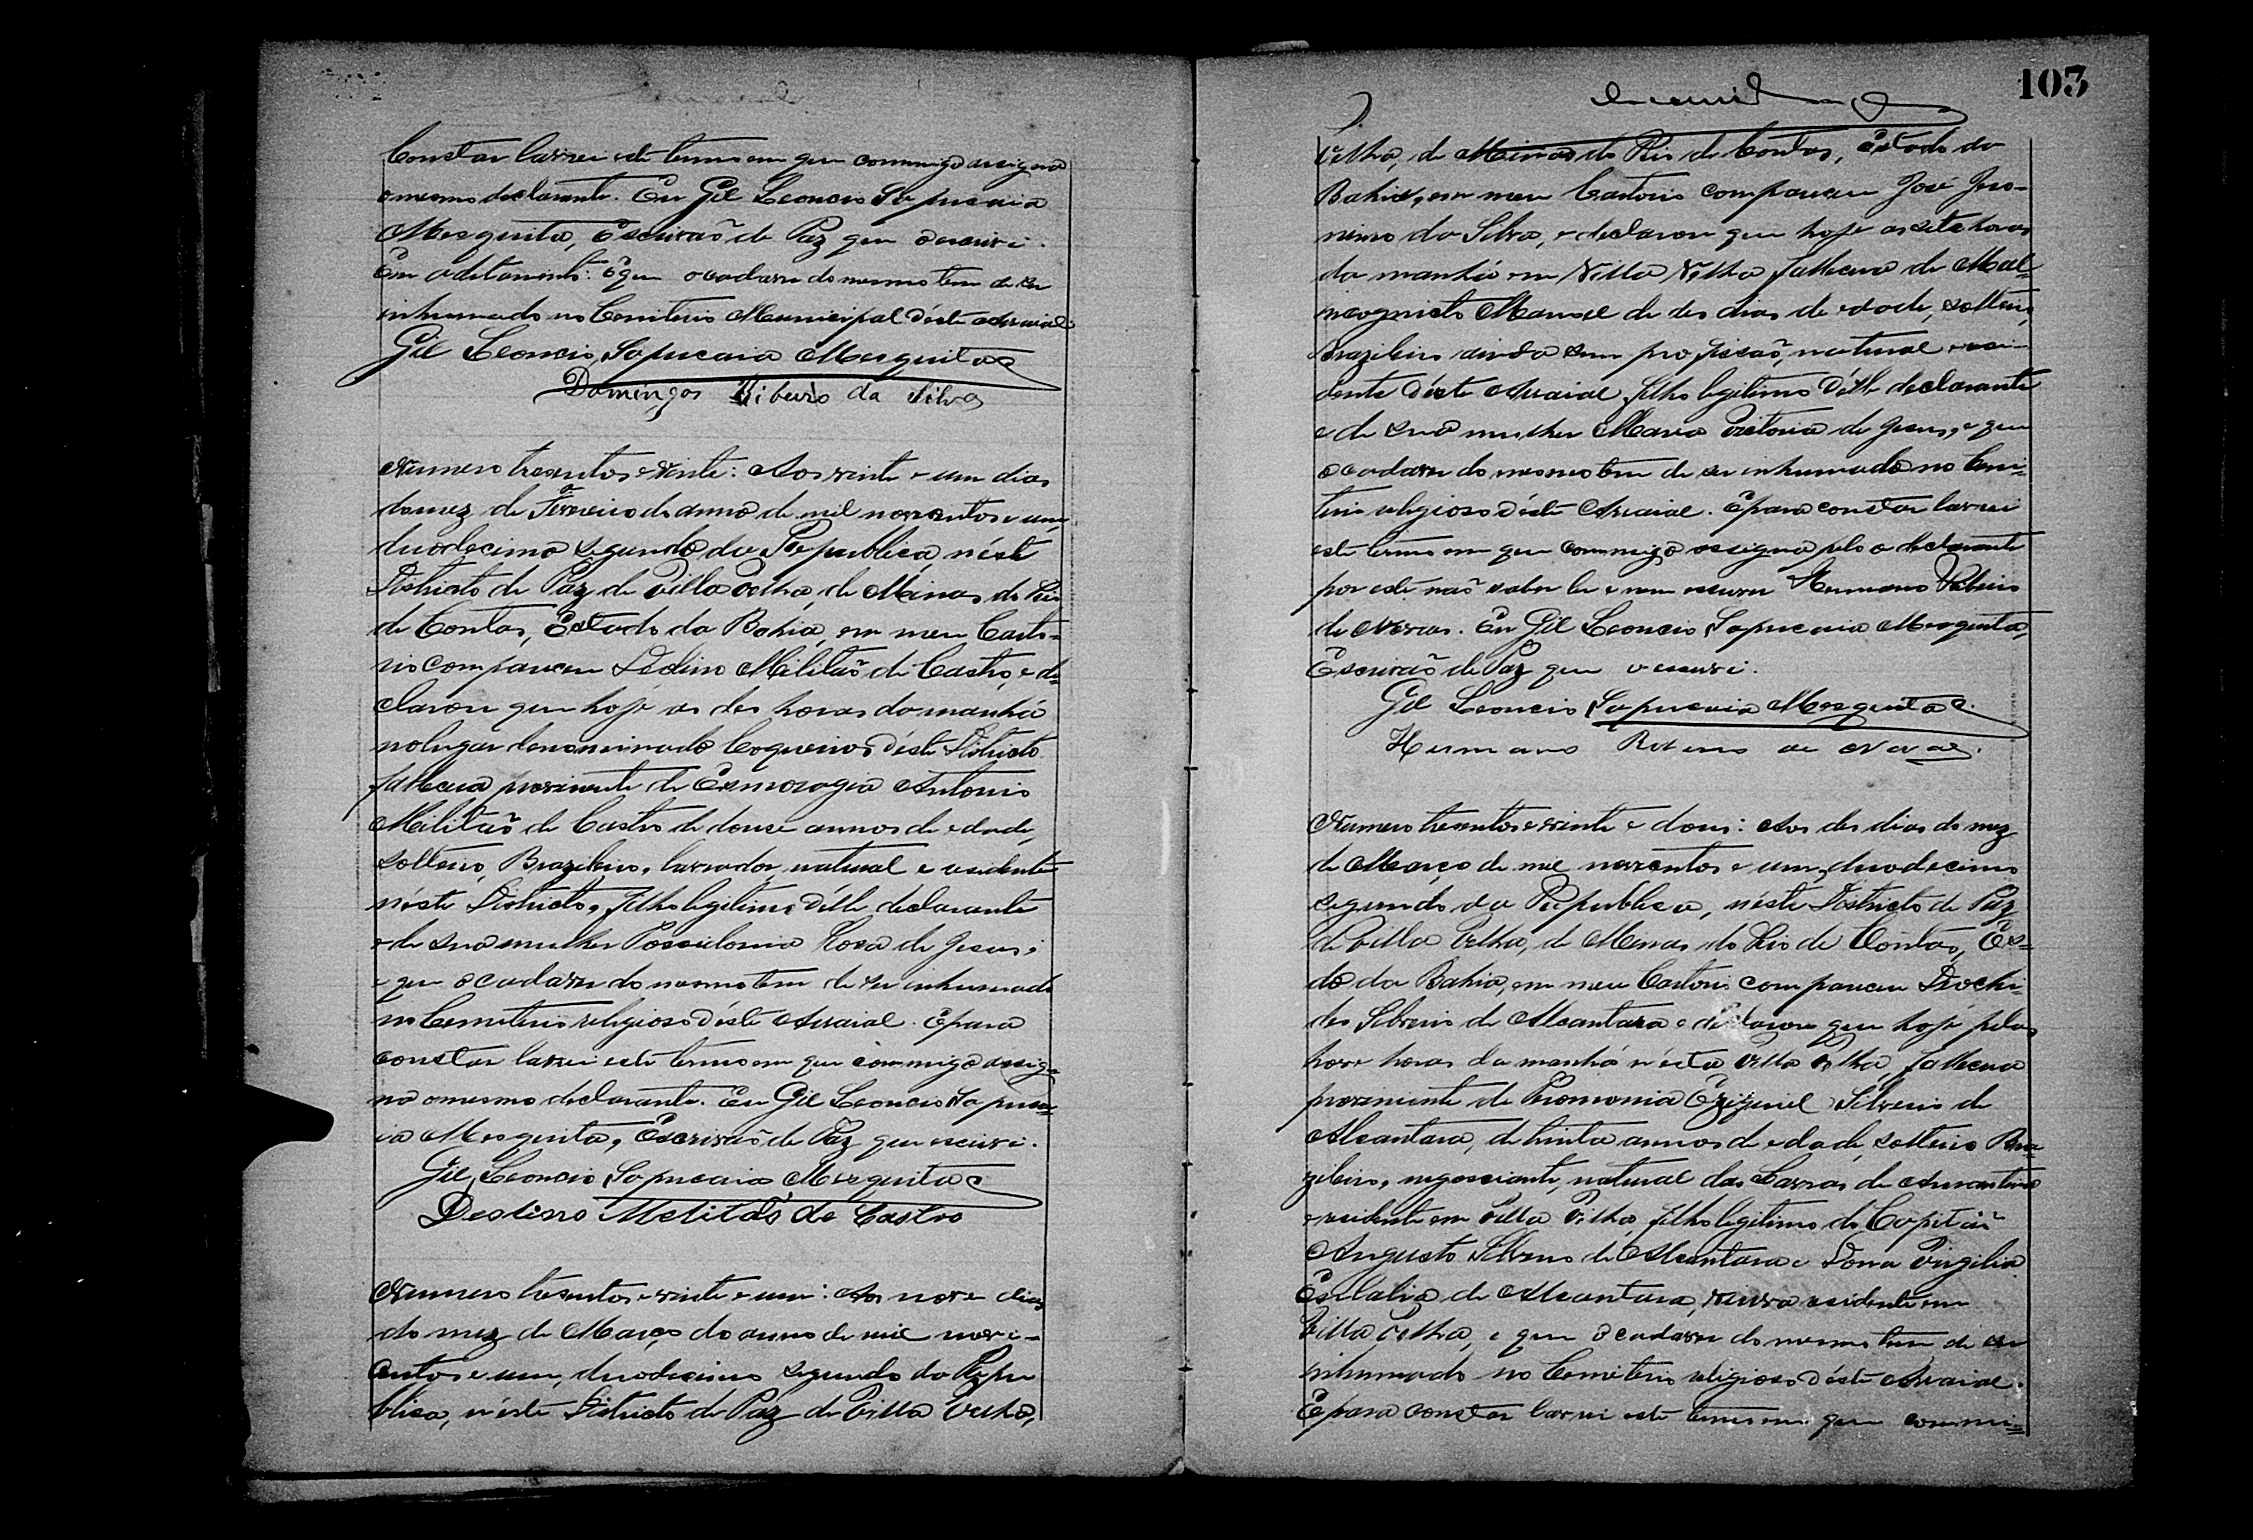 Constar lavrei este termo em que commigo assigna
o mesmo declarante. Eu Gil Leoncio Sapucaia
Mesquita, Escrivaõ de Paz que o escrivi.
Em aditamento: E que o cadaver do mesmo tem de ser
inhumado no Cemiterio Municipal d'éste Arraial
Gil Leoncio Sapucaia Mesquita
Domingos Ribeiro da Silva
Numero tresentos e vinte: Aos vinte e um dias
do mez de Fevereiro do anno de mil novecentos e um
duodecimo segundo da Republica, n'éste
Districto de Paz de Villa Velha, de Minas do Rio
de Contas, Estado da Bahia, em meu Carto-
rio compareceu Militaõ de Castro, e de-
clarou que hoje as des horas da manhá
no lugar denominado Coqueiros d'éste Districto
fallecera proviniente de Antonio
Militaõ de Castro de douse annos de edade,
solteiro, Brazileiro, lavrador, natural e residente
n'éste Districto, filho legitimo d'élle declarante
e de sua mulher Possidonia Rosa de Jesus;
e que o cadaver do mesmo tem de ser inhumado
no Cemiterio religioso d'éste Arraial. E para
constar lavrei este termo em que commigo assig-
na o mesmo declarante. Eu Gil Leoncio Sapuca-
ia Mesquita, Escrivaõ de Paz que escrivi.
Gil Leoncio Sapucaia Mesquita
Militaõ de Castro
Numero tresentos e vinte e um: Aos nove dias
do mez de Março do anno de mil nove-
centos e um, duodecimo segundo da Repu
blica, n'éste Districto de Paz de Villa Velha,
103
Velha, de Minas do Rio de Contas, Estado da
Bahia, em meu Cartorio compareceu José Jero-
nimo da Silva, e declarou que hoje as sete horas
da manhá em Villa Velha fallecera de Mal
incognito Manoel de des dias de edade, solteiro,
Brazileiro ainda sem profissaõ, natural e resi-
dente d'éste Arraial, filho legitimo d'élle declarante
e de sua mulher Maria Victoria de Jesus, e que
o cadaver do mesmo tem de ser inhumado no Cemi-
terio religioso d'éste Arraial. E para constar lavrei
este termo em que commigo assigna pelo o declarante
por este naõ saber ler e nem escrever Hermano Ribeiro
de Novaes. Eu Gil Leoncio Sapucaia Mesquita,
Escrivaõ de Paz que o escrivi.
Gil Leoncio Sapucaia Mesquita
Hermano Ribeiro de Novaes.
Numero tresentos e vinte e dous: Aos des dias do mez
de Março de mil novecentos e um, duodecimo
segundo da Republica, n'éste Districto de Paz
de Villa Velha, de Minas do Rio de Contas, Es-
do da Bahia, em meu Cartorio compareceu
Silverio de Alcantara e declarou que hoje pelas
nove horas da manhá n'ésta Villa Velha, fallecera
proviniente de Ezequiel Silverio de
Alcantara, de trinta annos de edade, solteiro Bra-
zileiro, negociante, natural das Lavras de
e residente em Villa Velha, filho legitimo do Capitaõ
Augusto Silverio de Alcantara e Dona Virgilia
Eulalia de Alcantara, residente em
Villa Velha, e que o cadaver do mesmo tem de ser
inhumado no Cemiterio religioso d'éste Arraial.
E para constar lavrei este termo em que commi-